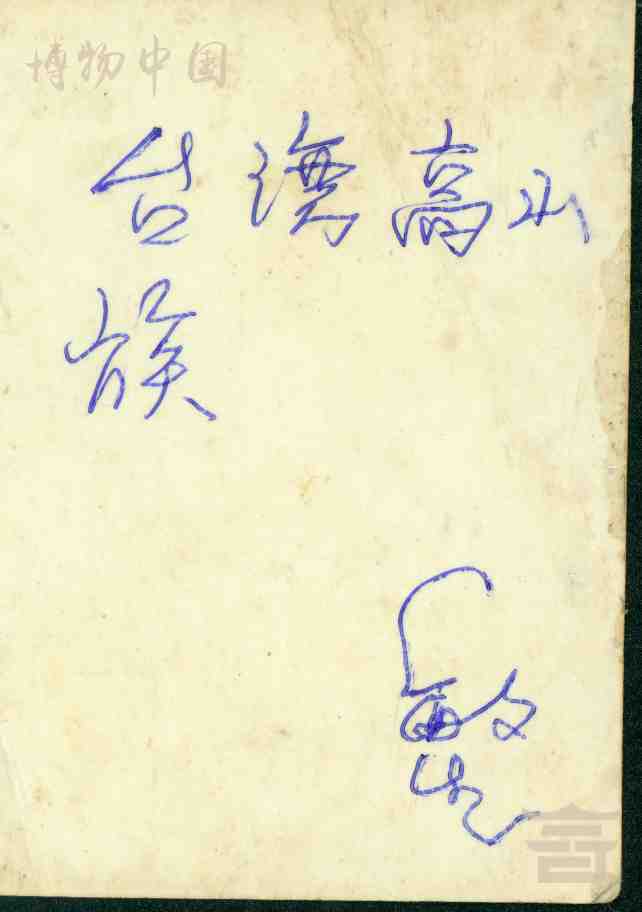 博物中国
台湾高山
族